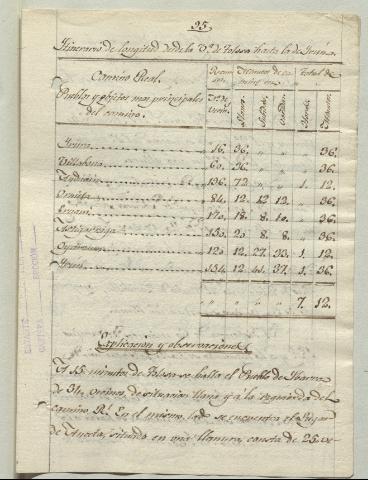 35
Itinerario de longitud desde la V.ª de Tolosa hasta la de Yrún.
Camino Real.
Pueblos y objetos mas principales
del camino.
Minutos de ca
Total de
Llano.
Subida.
Bajada.
Horas.
Minutos.
Yrura 16. 36. " " " 36.
Villabona 60. 36. " " " 36.
Andoain 136. 72. " " 1. 12.
Urnieta 84. 12. 12. 12. " 36.
Ernani 170. 18. 8. 10. " 36.
Astigarraga 130. 20. 8. 8. " 36.
Oyarzun 120. 12. 27. 33. 1. 12.
Yrun 154. 12. 41. 37. 1. 36.
" " " " 7. 12.
Explicacion y observaciones.
A 15 minutos de Tolosa se halla el Pueblo de Ibarra
vecinos, de situacion llana y a la izquierda del
camino R.l En el mismo lado se encuentra el Lugar
de situado en una llanura, consta de 25 ve-